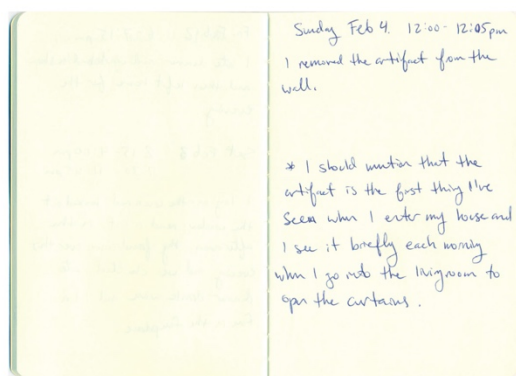 Sunday Feb 4. 12:00 - 12:05pm
I removed the artifact from the
wall.
* I should mention that the
artifact is the first thing I've
seen when I enter my house and
I see it briefly each morning
when I go into the livingroom to
open the curtains.